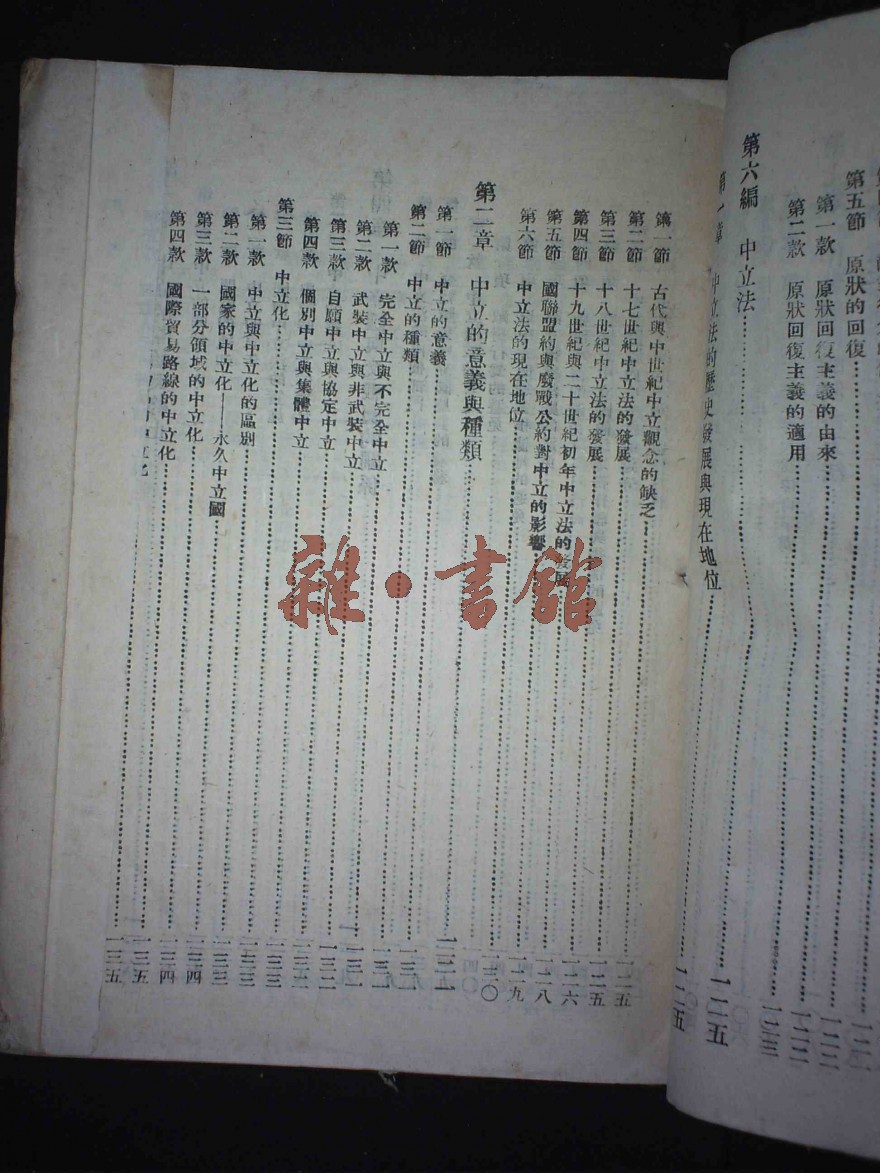 第五節 原狀的回復
第一款 原狀回復主義的由來
第二款 原狀回復主義的適用 一二三
第六編 中立法 一二五
第一章 中立法的歷史發展與現在地位 一二五
第一節 古代與中世紀中立觀念的缺乏 一二五
第二節 十七世紀中立法的發展 一二五
第三節 十八世紀中立法的發展 一二六
第四節 十九世紀與二十世紀初年中立法的發展
第五節 國聯盟約與廢戰公約對中立的影響 一二八
第六節 中立法的現在地位 一二九
第二章 中立的意義與種類 一三〇
第一節 中立的意義
第二節 中立的種類
第一款 完全中立與不完全中立
第二款 武裝中立與非武裝中立
第三款 自願中立與協定中立
第四款 個別中立與集體中立
第三節 中立化
第一款 中立與中立化的區別
第二款 國家的中立化——永久中立國
第三款 一部分領域的中立化 一三四
第四款 國際貿易路線的中立化 一三四
中立化 一三五
一三五
雜·書館